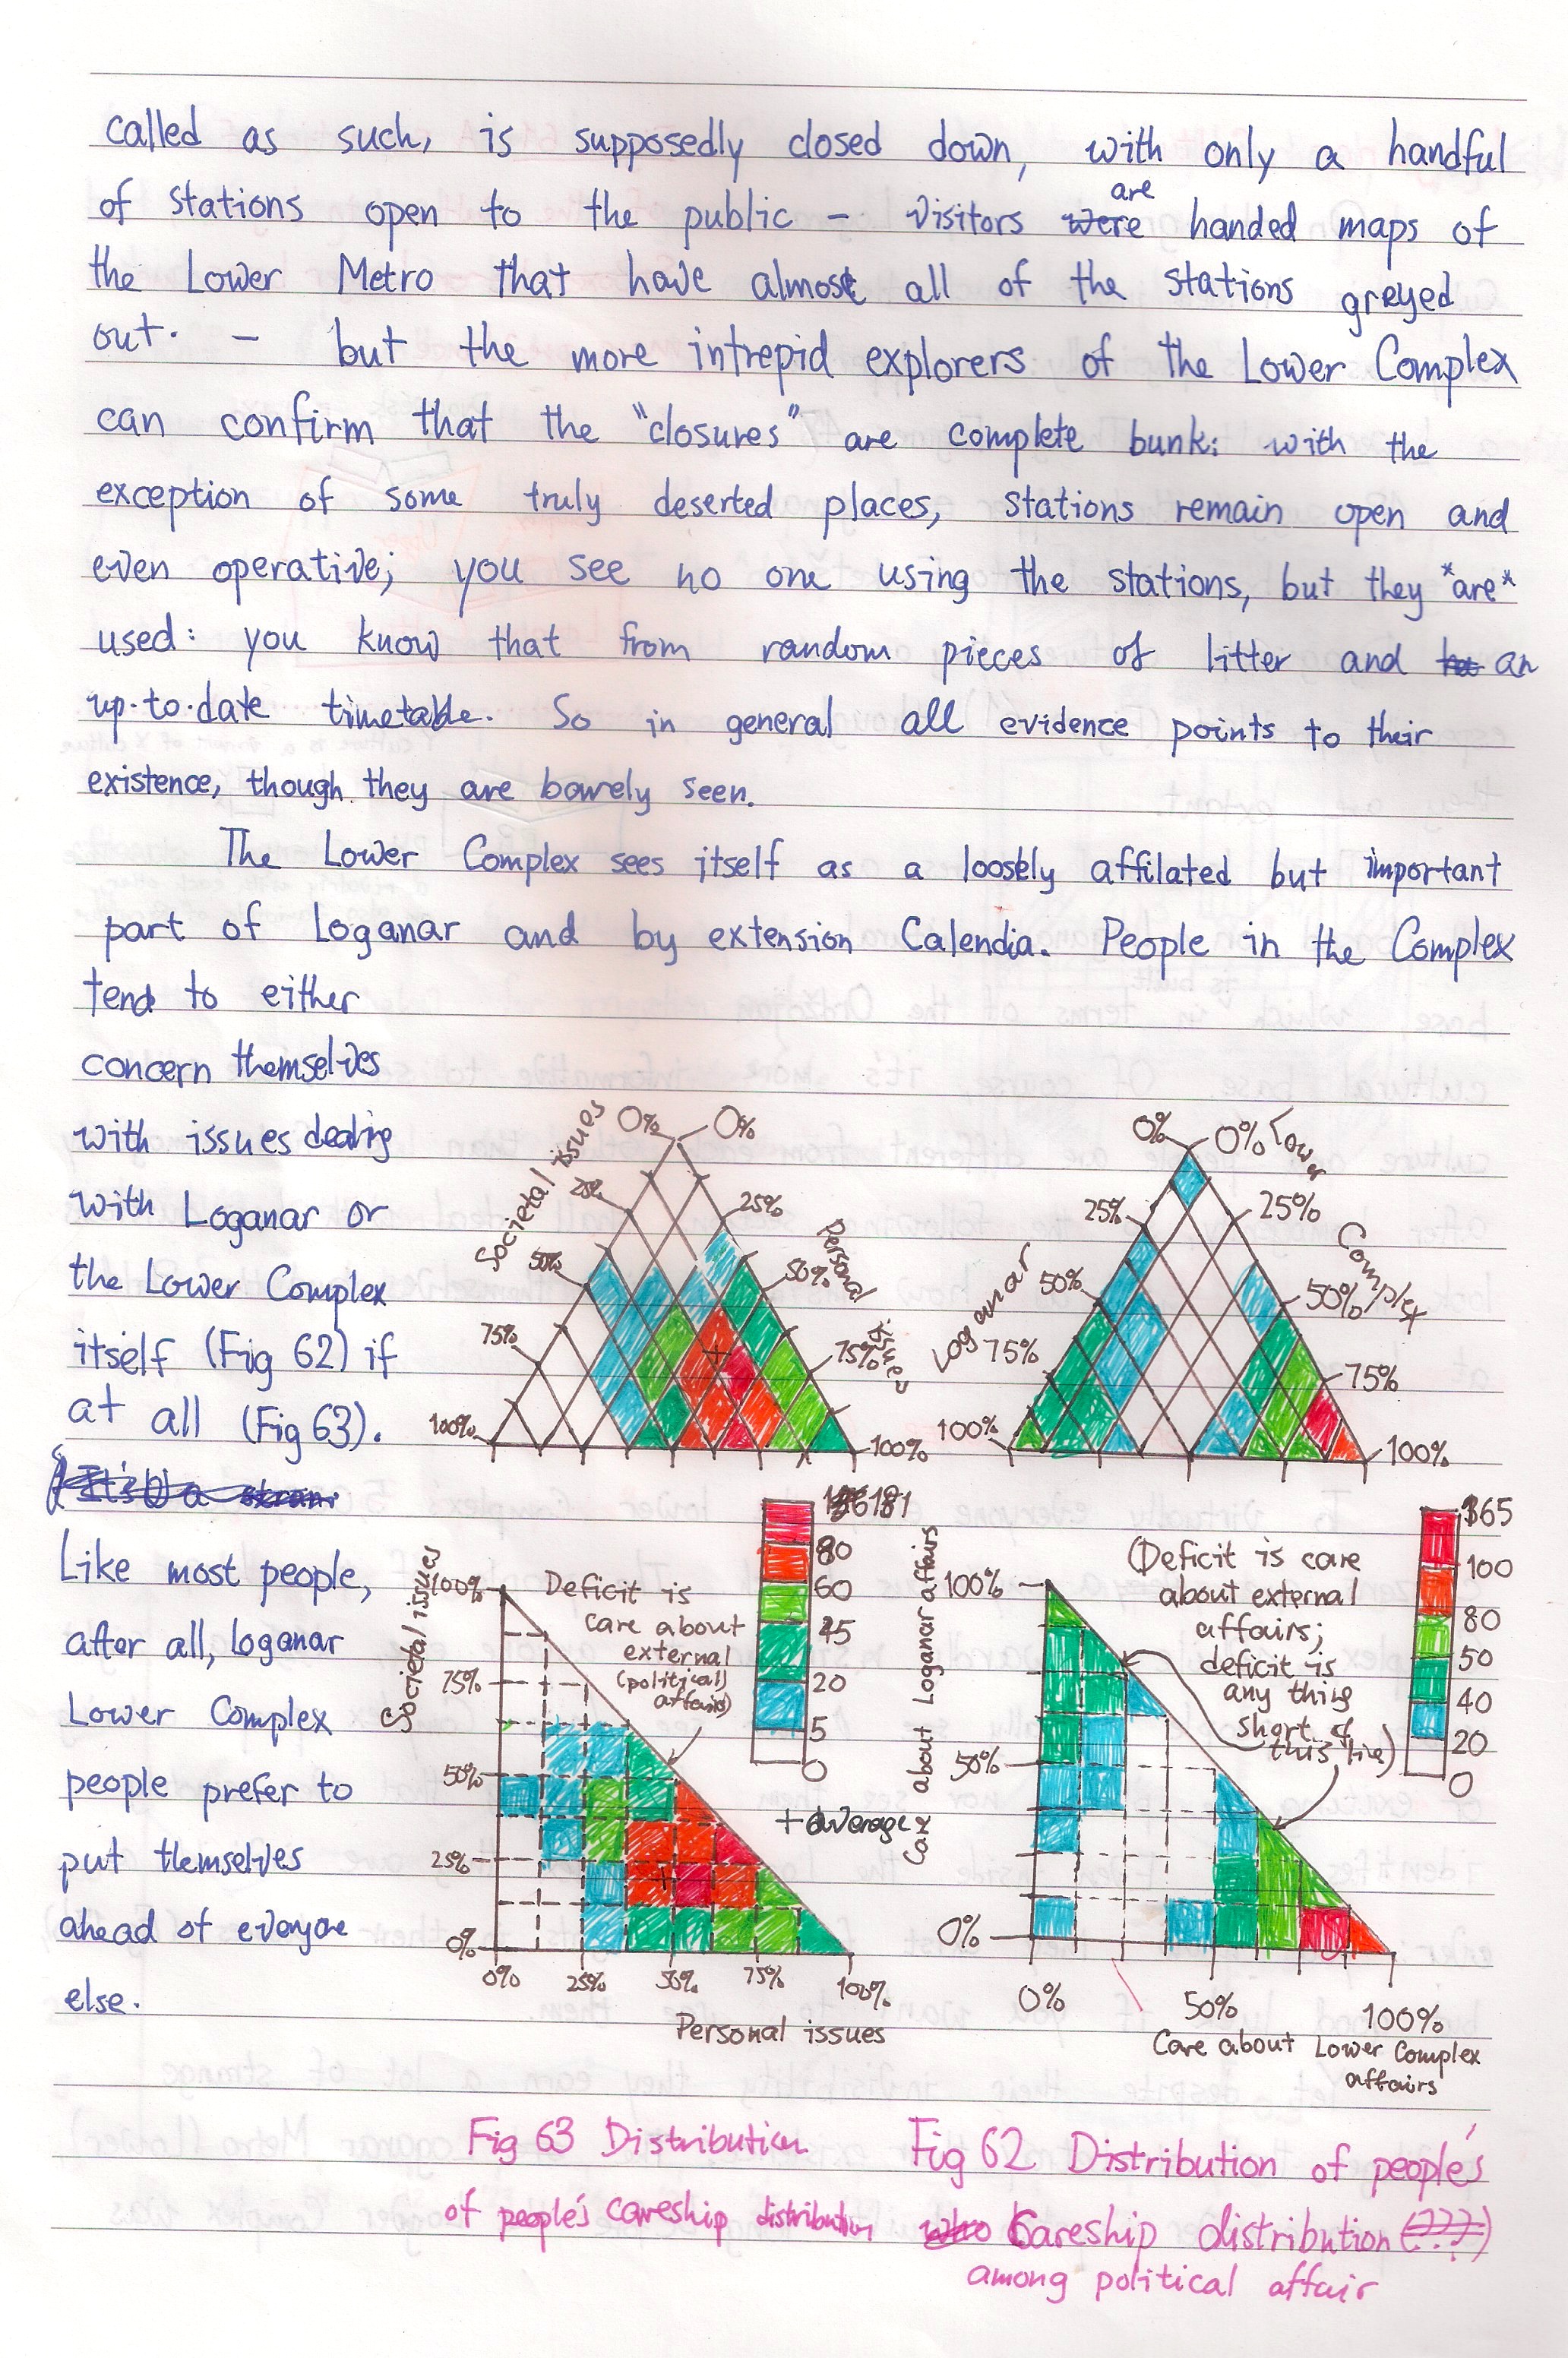 called as such, is supposedly closed down, with only a handful
of stations open to the public – visitors were are handed maps of
the Lower Metro that have almost all of the stations greyed
out. – but the more intrepid explorers of the Lower Complex
can confirm that the "closures" are complete bunk: with the
exception of some truly deserted places, stations remain open and
even operative; you see no one using the stations, but they *are*
used: you know that from random pieces of litter and an
up-to-date timetable. So in general all evidence points to their
existence, though they are barely seen.
The Lower Complex sees itself as a loosely affilated but important
part of Loganar and by extension Calendia. People in the Complex
tend to either
concern themselves
with issues dealing
with Loganar or
the Lower Complex
itself (Fig 62) if
at all (Fig 63).
Like most people,
after all, loganar
Lower Complex
people prefer to
put themselves
ahead of everyone
else.
Societal issues
0% 0%
25% 25%
50% 50%
75% 75%
100% 100%
Personal issues
0% 0%
25% 25%
50% 50%
75% 75%
100% 100%
Loganar
Lower Complex
Societal issues
100%
75%
50%
25%
0%
0% 25% 50% 75% 100%
Personal issues
Deficit is
care about
external
(political)
affairs)
181
80
60
45
20
5
0
+ average
Care about Loganar affairs
100%
50%
0%
0% 50% 100%
Care about Lower Complex
affairs
(Deficit is care
about external
affairs;
deficit is
any thing
short of
this line)
165
100
80
50
40
20
0
Fig 63 Distribution
of people's careship distribution
Fig 62 Distribution of people's
who Careship distribution (???)
among political affair